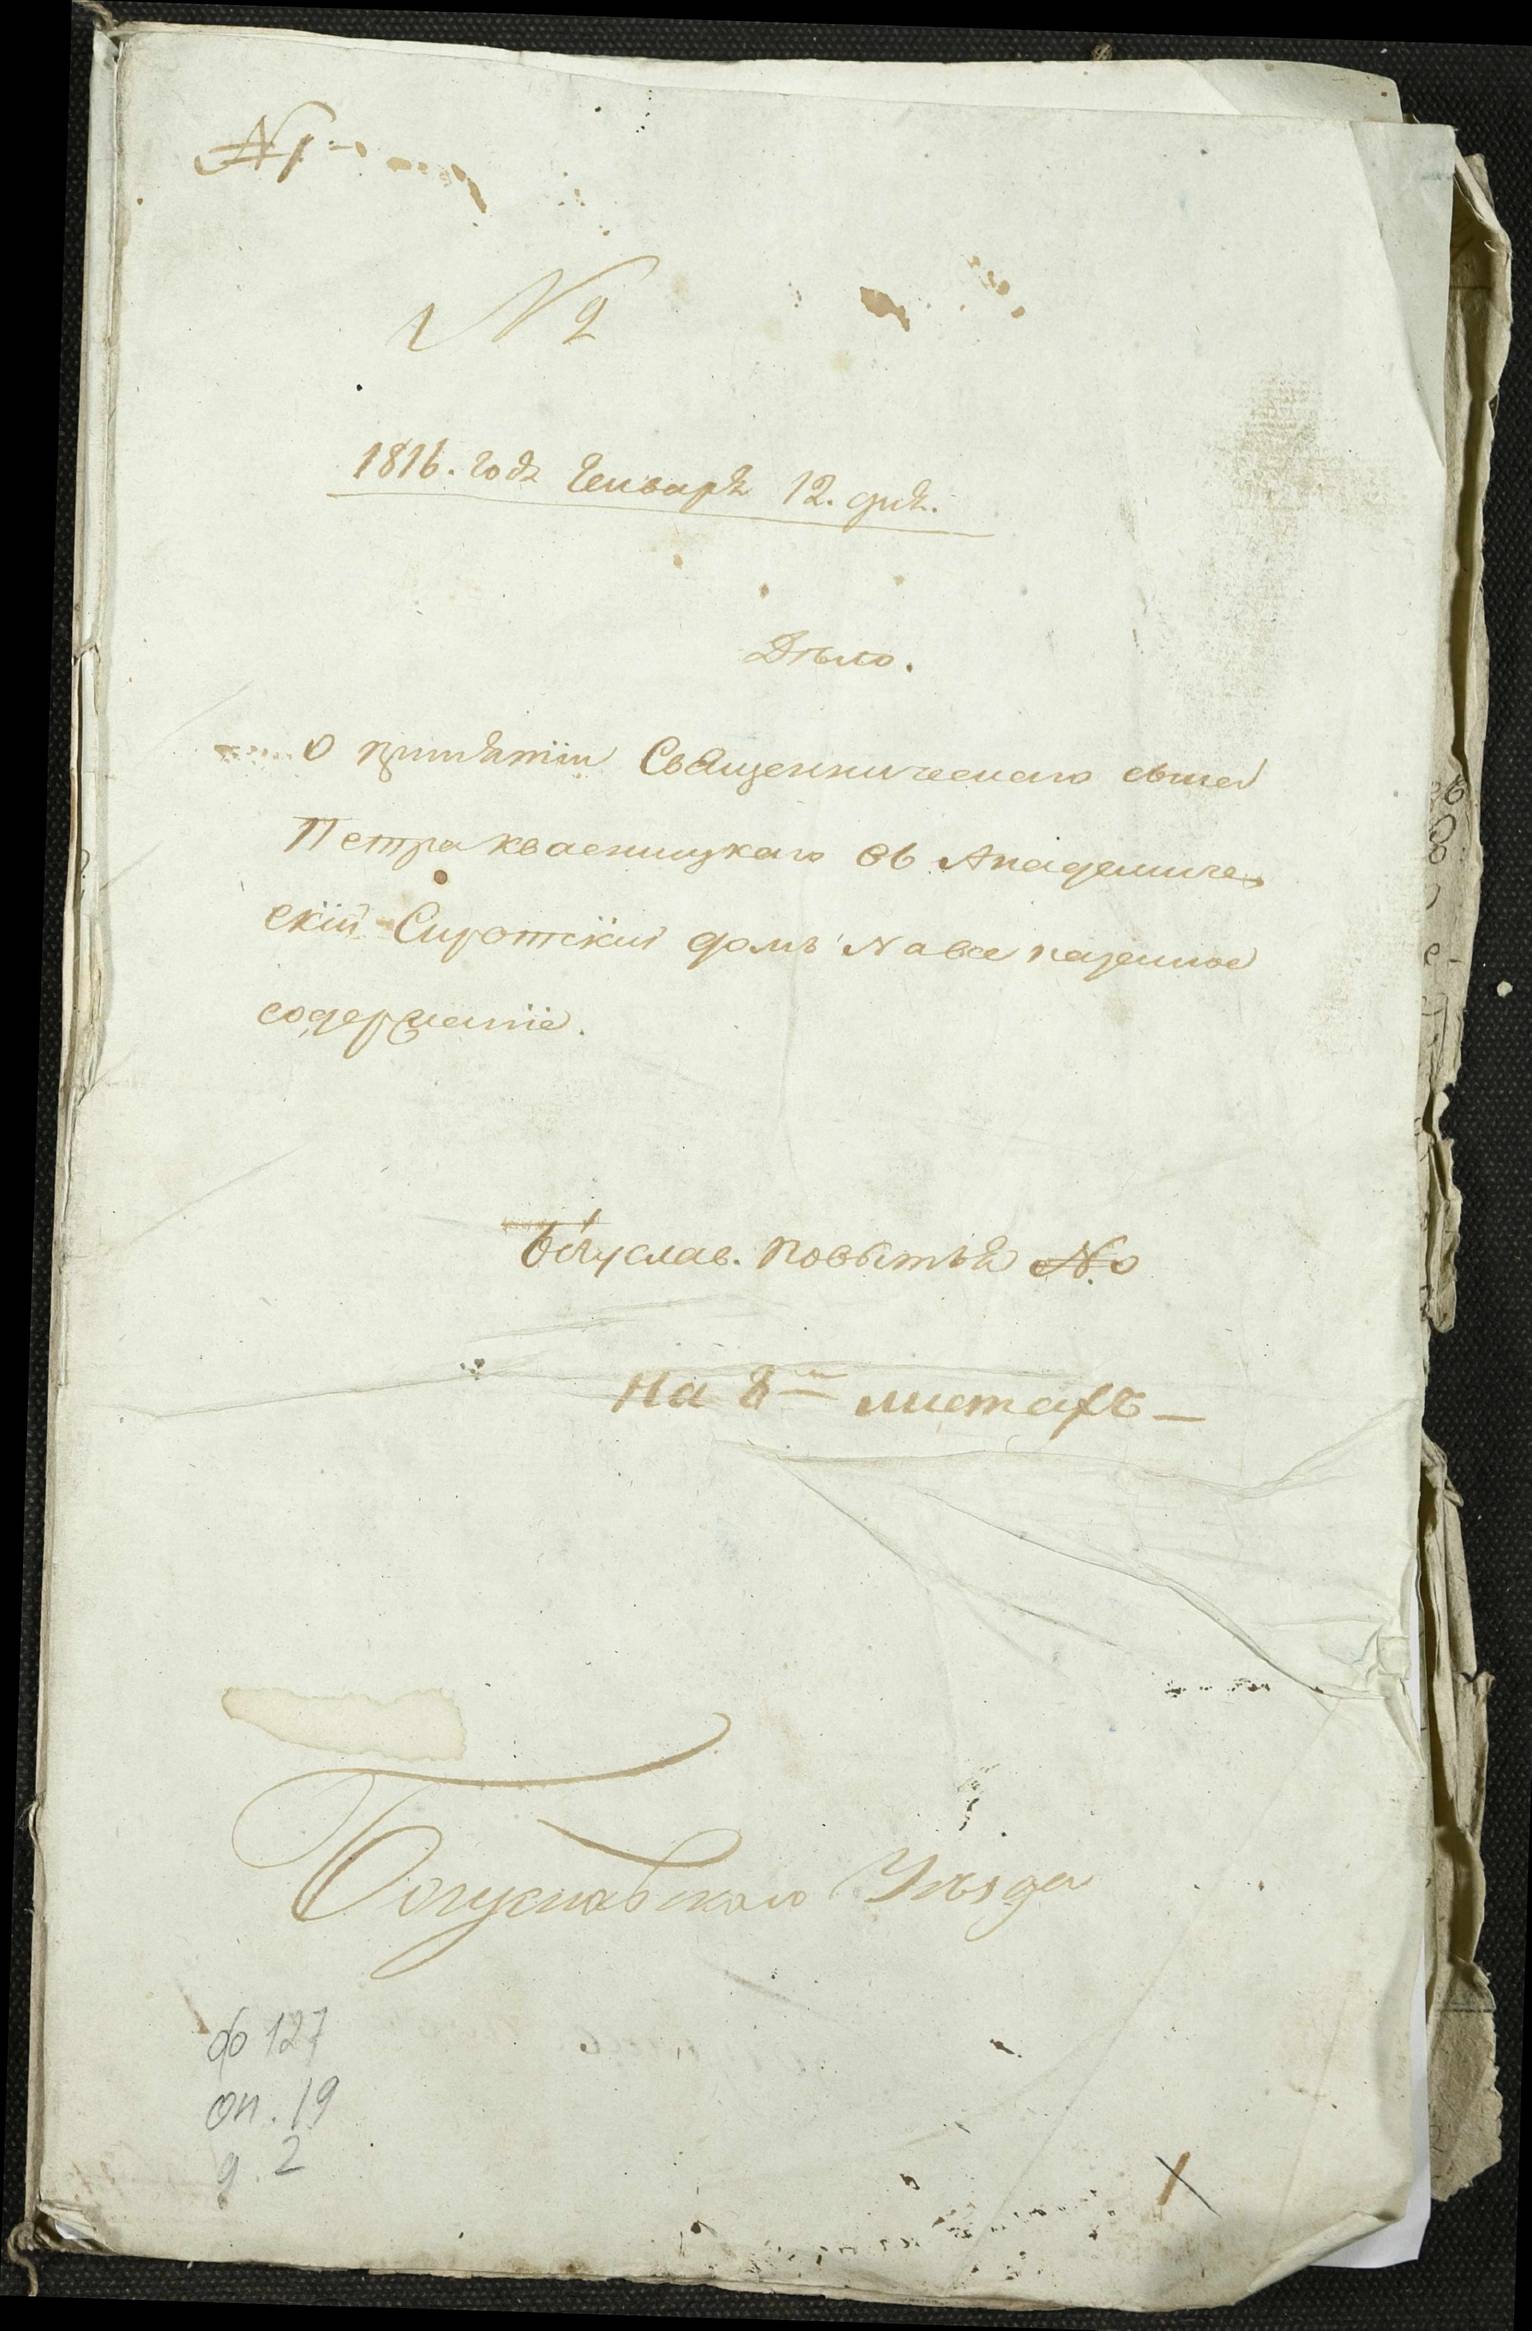 № 1
№ 2
1816. годꙋ Генварѧ 12. днѧ.
Дѣло.
О принѧтіи Священническаго сына
Петра Квасницкаго въ Академиче-
скій Сиротскій домъ на все казенное
содержаніе.
Богуслав. повытьѧ №
на 8ми листахъ —
Богуславскаго Уѣзда
ф 127
оп. 19
д. 2
1